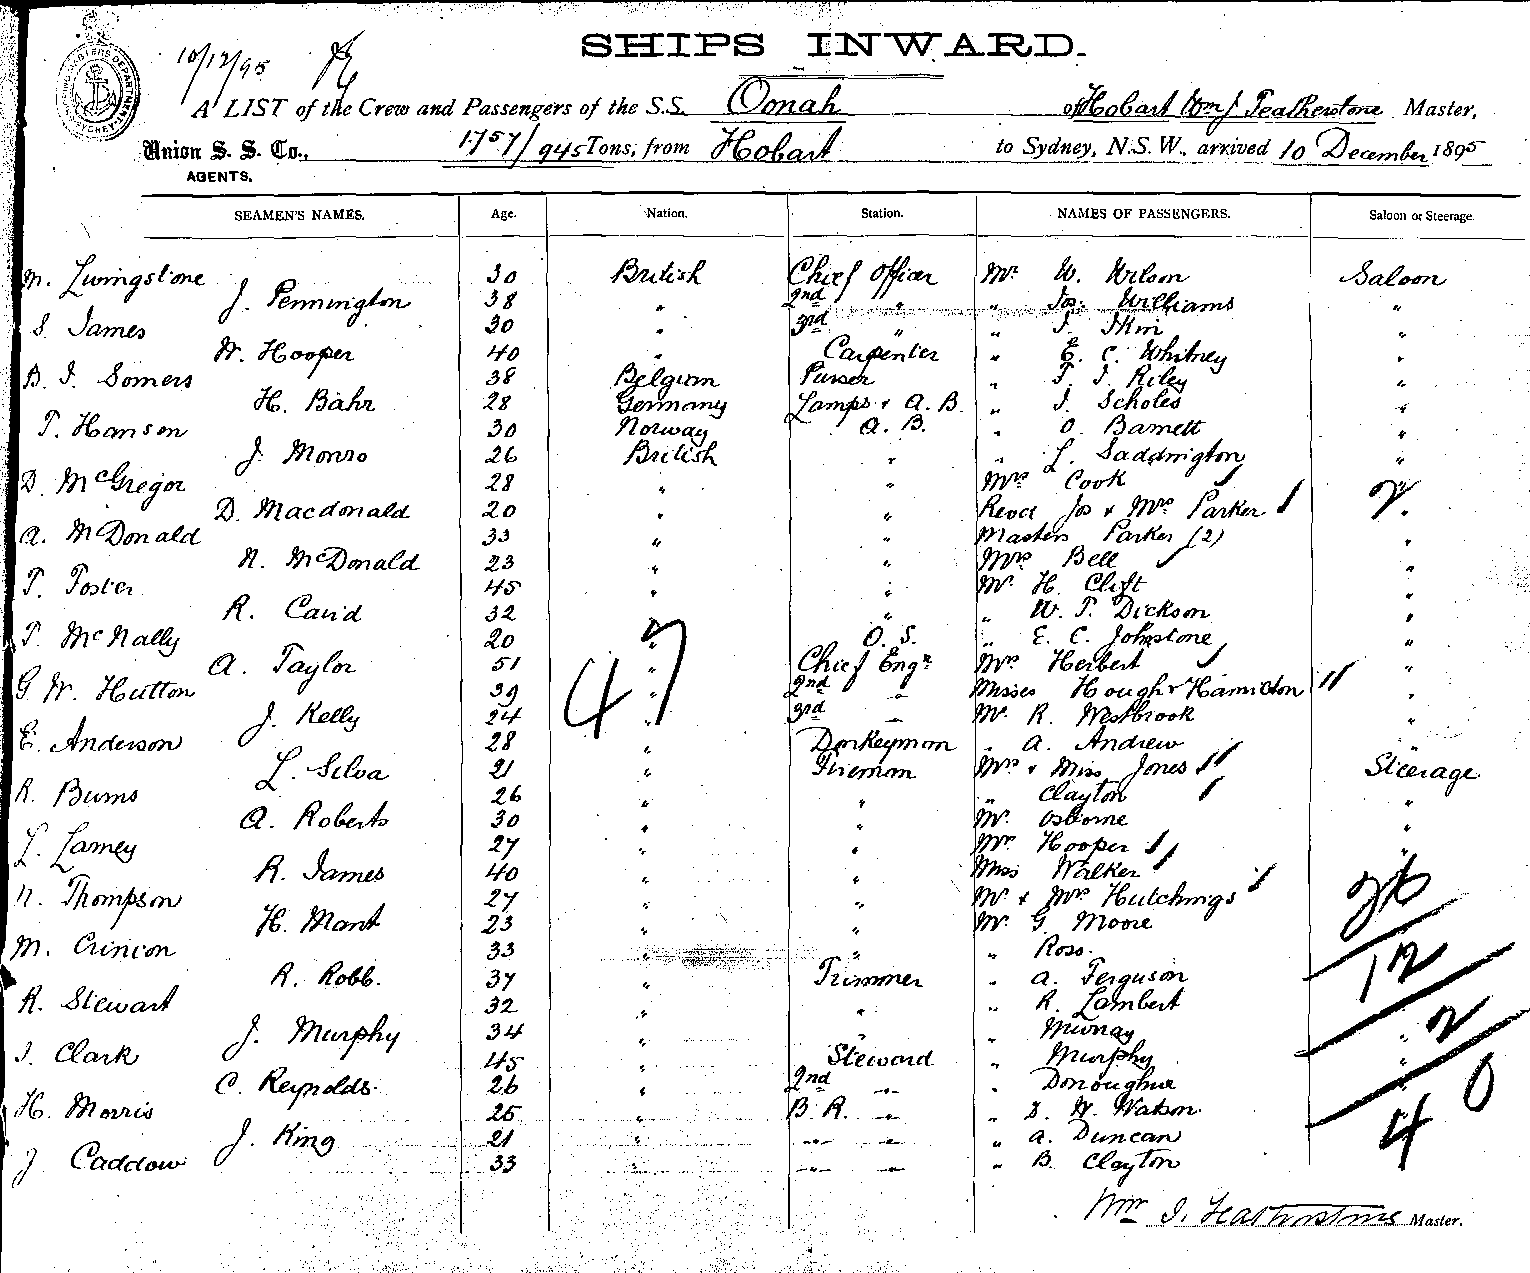 SHIPS INWARD.
10/12/95
A LIST of the Crew and Passengers of the S.S. Oonah of Hobart Wm J Featherstone Master,
Union S. S. Co., 1757/945 Tons, from Hobart to Sydney, N.S.W., arrived 10 December 1895
AGENTS.
SEAMEN'S NAMES. Age. Nation. Station. NAMES OF PASSENGERS. Saloon or Steerage.
M. Livingstone 30 British Chief Officer Mr W. Wilson Saloon
J. Pennington 38 " 2nd " " Jos. Williams "
S. James 30 " 3rd " " "
W. Hooper 40 " Carpenter " E. C. Whitney "
B. I. Somers 38 Belgium Purser " T. J. Riley "
H. Bahr 28 Germany Lamps & A. B. " J. Scholes "
T. Hansen 30 Norway A. B. " O. Barnett "
J. Monro 26 British " " L. Saddington "
D. McGregor 28 " " Mrs Cook 2
D. Macdonald 20 " " Revd Jos & Mrs Parker "
A. McDonald 33 " " Masters Parker (2) "
N. McDonald 23 " " Mrs Bell "
T. Foster 45 " " Mr H. Clift "
R. Caird 32 " " " W. T. Dickson "
T. McNally 20 " O. S. " E. C. Johnstone "
A. Taylor 51 " Chief Engr Mrs Herbert "
G W. Hutton 39 " 2nd " Misses Hough & Hamilton "
J. Kelly 24 " 3rd " Mr R. Westbrook "
47
E. Anderson 28 " Donkeyman " A. Andrew "
L. Silva 21 " Fireman Mrs & Miss Jones Steerage
R. Burns 26 " " " Clayton "
A. Roberts 30 " " Mr Osborne "
L. Lamey 27 " " Mrs Hooper "
R. James 40 " " Miss Walker
N. Thompson 27 " " Mr & Mrs Hutchings 26
H. Mant 23 " " Mr G. Moore
M. Crinion 33 " " " Ross. 12
R. Robb. 37 " Trimmer " A. Ferguson
R. Stewart 32 " " " R. Lambert
J. Murphy 34 " " " Murray " 2
J. Clark 45 " Steward " Murphy "
C. Reynolds 26 " 2nd " " Donoughue " 0
H. Morris 25 " B. R. " " D. W. Watson 4
J. King 21 " " " " A. Duncan
J Caddow 33 " " " " B. Clayton
Wm J. Featherstone Master.